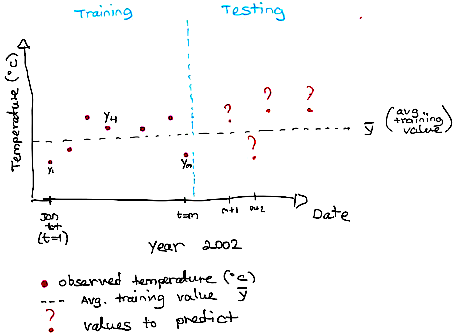 Training Testing
Temperature (°C)
y₄
y₁
yₘ
? ? ? ?
ȳ (avg. training value)
Jan 1st (t=1)
t=m
m+1
m+2
Date
Year 2002
observed temperature (°C)
--- Avg. training value ȳ
? values to predict